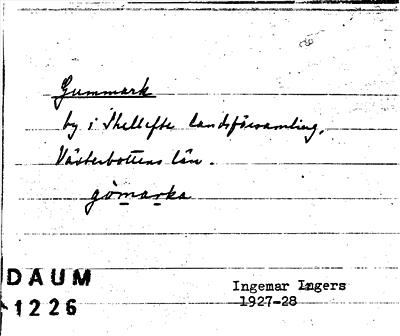 Gummark
by i Skellefte landsförsamling,
Västerbottens län.
gòmarka
DAUM
1226
Ingemar Ingers
1927-28